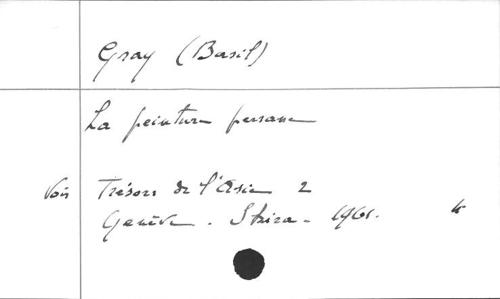 Gray (Basil)
La peinture persane
Voir Trésors de l'Asie 2
Genève. Skira. 1961.